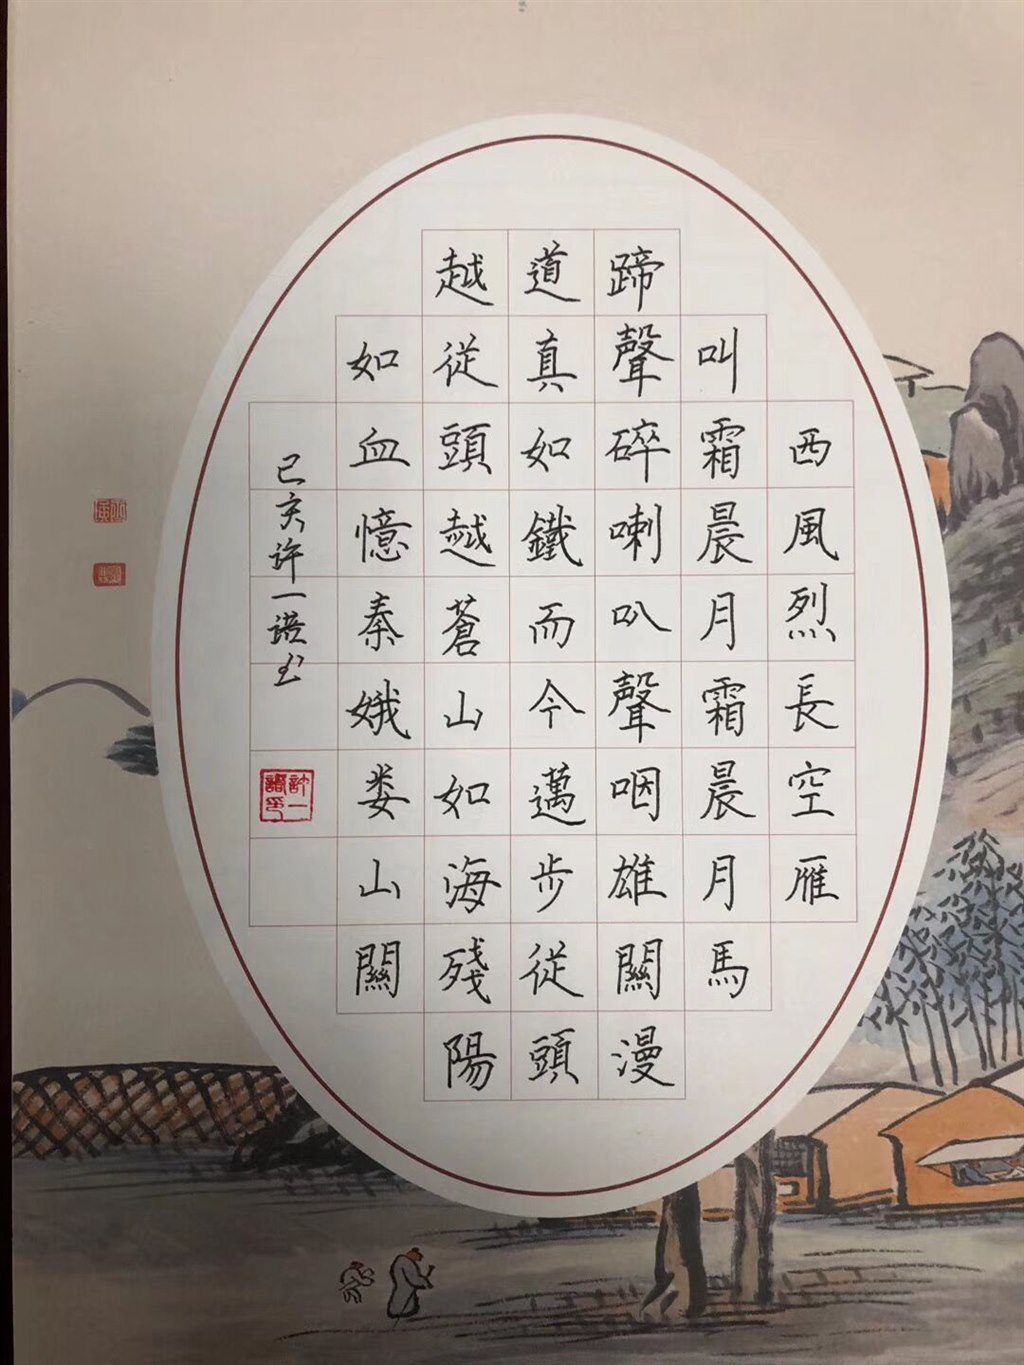 西風烈長空雁
叫霜晨月霜晨月馬
蹄聲碎喇叭聲咽雄關漫
道真如鐵而今邁步從頭
越從頭越蒼山如海殘陽
如血憶秦娥娄山關
己亥许一諾书
許一諾印